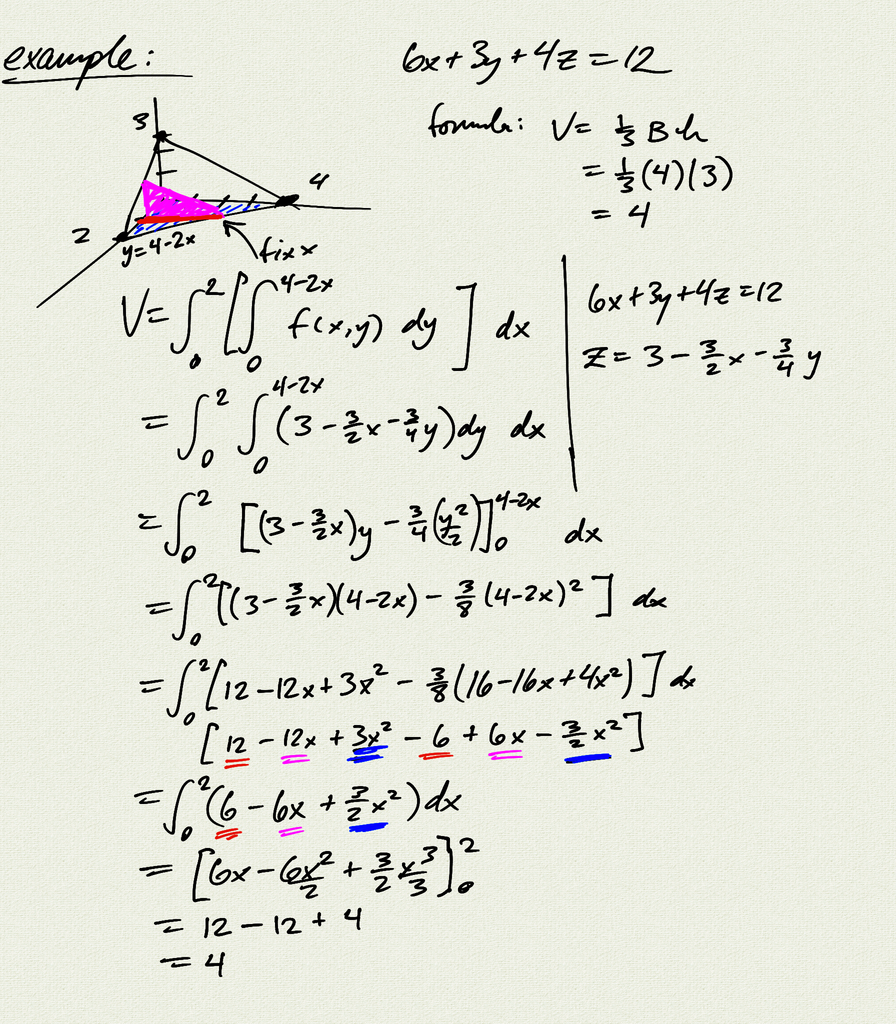 example:
6x + 3y + 4z = 12
3
4
2
y = 4-2x
fix x
formula: V = 1/3 B h
= 1/3 (4)(3)
= 4
V = ∫_0^2 [ ∫_0^{4-2x} f(x,y) dy ] dx
6x + 3y + 4z = 12
z = 3 - 3/2 x - 3/4 y
= ∫_0^2 ∫_0^{4-2x} (3 - 3/2 x - 3/4 y) dy dx
= ∫_0^2 [(3 - 3/2 x)y - 3/4 (y^2/2)]_0^{4-2x} dx
= ∫_0^2 [(3 - 3/2 x)(4-2x) - 3/8 (4-2x)^2] dx
= ∫_0^2 [12 - 12x + 3x^2 - 3/8 (16 - 16x + 4x^2)] dx
[12 - 12x + 3x^2 - 6 + 6x - 3/2 x^2]
= ∫_0^2 (6 - 6x + 3/2 x^2) dx
= [6x - 6x^2/2 + 3/2 x^3/3]_0^2
= 12 - 12 + 4
= 4